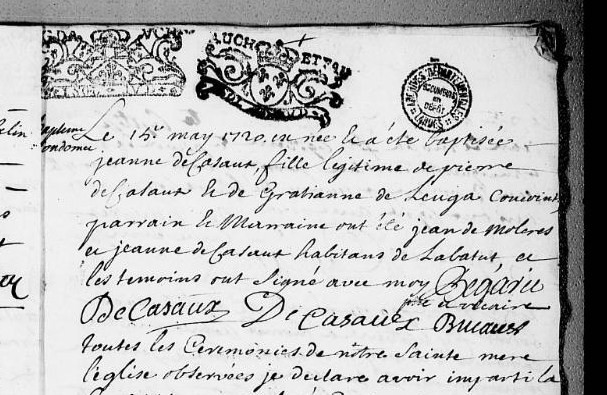 AUCH ET PAU
ARCHIVES DEPARTEMENTALES
DOCUMENT
EN
DEPOT
LANDES
Le 15e may 1720 en née et a été baptisée
jeanne de Casaux fille legitime de pierre
de Casaux et de Gratianne de Leuga
parrain et Marraine ont été jean de Moleres
et jeanne de Casaux habitans de Labatut et
les temoins ont signé avec moy
ptre et vicaire
De Casaux De Casaux
toutes les Ceremonies de nôtre Sainte mere
l'église observées je declare avoir imparti la